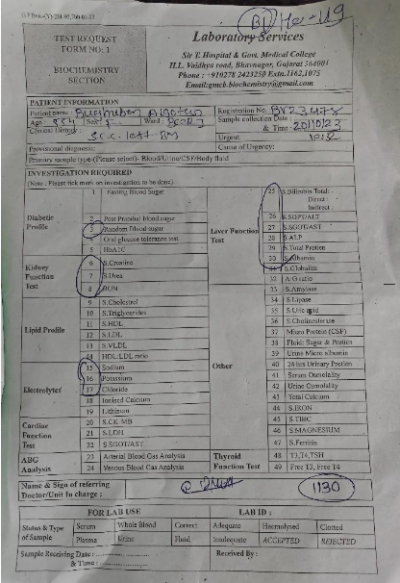 TEST REQUEST
FORM NO: 1
BIOCHEMISTRY
SECTION
Laboratory Services
Sir T. Hospital & Govt. Medical College
H.L. Vaidhya road, Bhavnagar, Gujarat-364001
Phone : +910278 2423250 Extn.1162,1075
Email:gmcb.biochemistry@gmail.com
PATIENT INFORMATION
Patient name:
Registration No.
Age
Ward
Sample collection Date :
& Time : 20/10/23
Clinical History :
Urgent:
Provisional diagnosis:
Cause of Urgency:
Primary sample type-(Please select)- Blood/Urine/CSF/Body fluid
INVESTIGATION REQUIRED
(Note : Please tick mark on investigation to be done)
Diabetic Profile
1 Fasting Blood Sugar
2 Post Prandial Blood sugar
3 Random Blood sugar
4 Oral glucose tolerance test
5 HbA1C
Kidney Function Test
6 S.Creatine
7 S.Urea
8 BUN
Lipid Profile
9 S.Cholesterol
10 S.Triglycerides
11 S.HDL
12 S.LDL
13 S.VLDL
14 HDL:LDL ratio
Electrolytes
15 Sodium
16 Potassium
17 Chloride
18 Ionized Calcium
19 Lithium
Cardiac Function Test
20 S.CK-MB
21 S.LDH
22 S.SGOT/AST
ABG Analysis
23 Arterial Blood Gas Analysis
24 Venous Blood Gas Analysis
Liver Function Test
25 S.Bilirubin Total :
Direct :
Indirect :
26 S.SGPT/ALT
27 S.SGOT/AST
28 S.ALP
29 S.Total Protien
30 S.Albumin
31 S.Globulin
32 A:G ratio
Other
33 S.Amylase
34 S.Lipase
35 S.Uric acid
36 S.Cholinesterase
37 Micro Protein (CSF)
38 Fluid: Sugar & Protien
39 Urine Micro albumin
40 24 hrs Urinary Protien
41 Serum Osmolality
42 Urine Osmolality
43 Total Calcium
44 S.IRON
45 S.TIBC
46 S.MAGNESIUM
47 S.Ferritin
Thyroid Function Test
48 T3,T4,TSH
49 Free T3, Free T4
Name & Sign of referring
Doctor/Unit In charge :
1130
FOR LAB USE
LAB ID :
Status & Type of Sample
Serum Whole Blood Correct Adequate Haemolysed Clotted
Plasma Urine Fluid Inadequate ACCEPTED REJECTED
Sample Receiving Date :
& Time :
Received By :